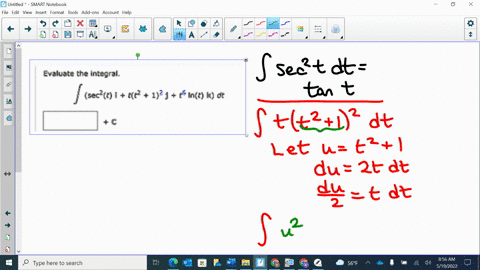 Untitled * - SMART Notebook
File Edit View Insert Format Tools Add-ons Account Help
Evaluate the integral.
∫ (sec²(t) i + t(t² + 1)² j + t⁶ ln(t) k) dt
+ C
∫ sec² t dt =
tan t
∫ t(t²+1)² dt
Let u = t²+1
du = 2t dt
du/2 = t dt
∫ u²
Type here to search
56°F
8:56 AM
5/19/2022